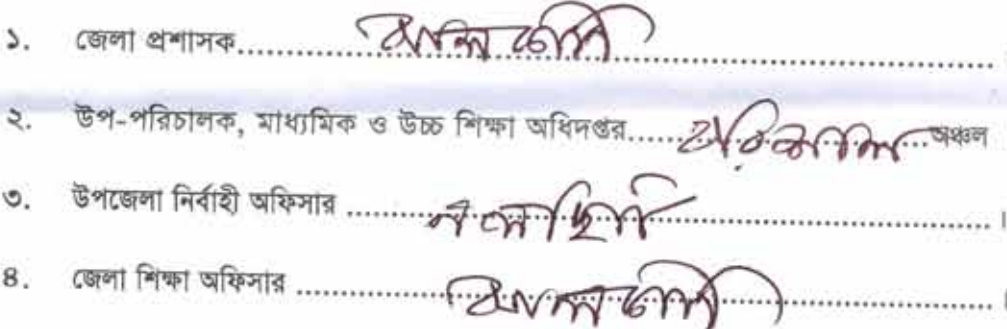 ১. জেলা প্রশাসক.......ঝালকাঠী.......।
২. উপ-পরিচালক, মাধ্যমিক ও উচ্চ শিক্ষা অধিদপ্তর.....বরিশাল....অঞ্চল
৩. উপজেলা নির্বাহী অফিসার .......নলছিটি.......।
৪. জেলা শিক্ষা অফিসার .......ঝালকাঠী.......।